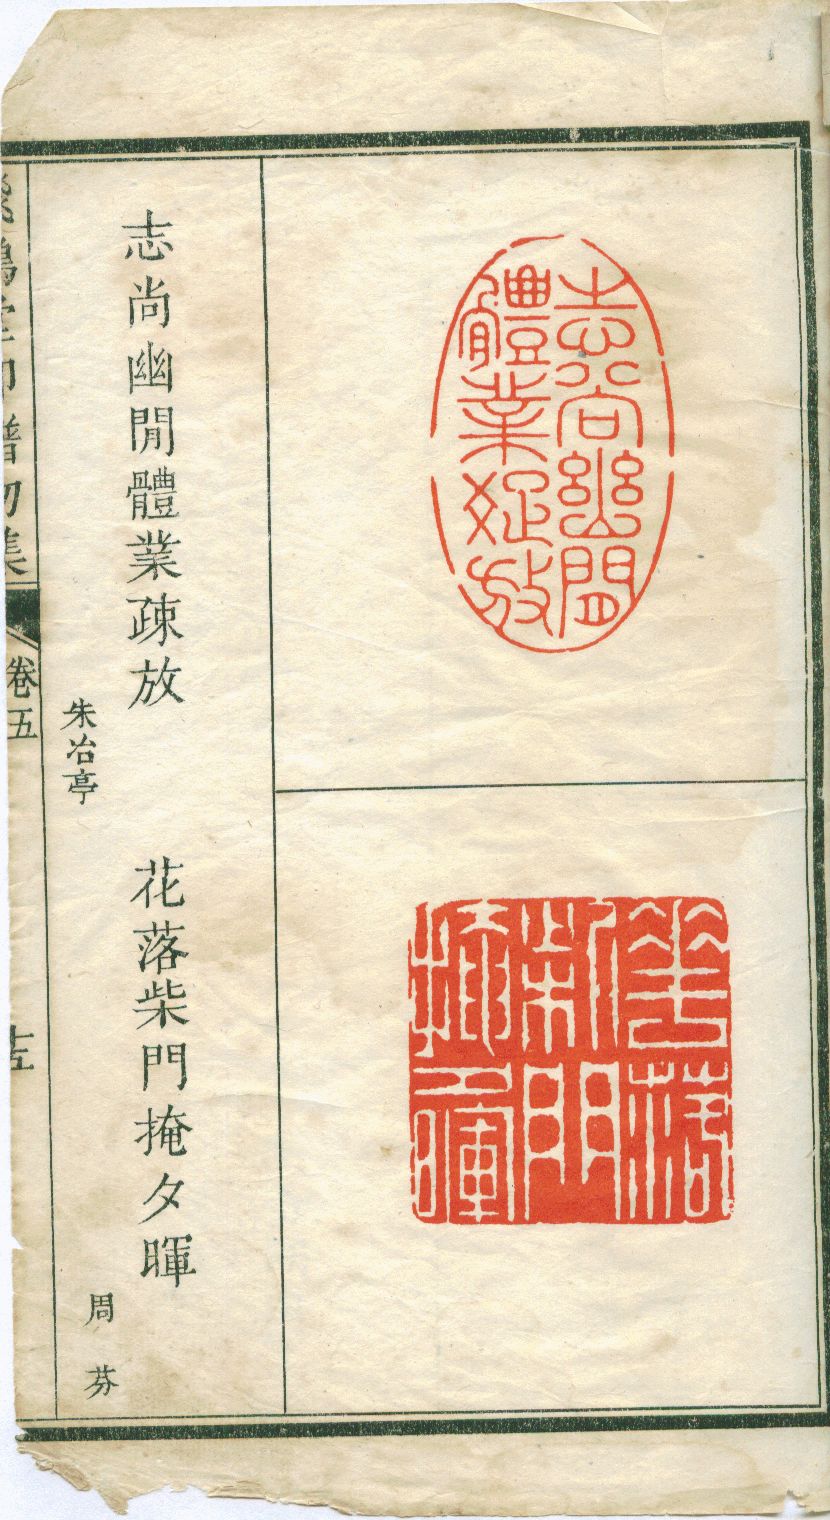 志尚幽閒
體業疎放
花落
柴門
掩夕暉
志尚幽閒體業疎放
朱冶亭
花落柴門掩夕暉
周芬
飛鴻堂印譜初集
卷五